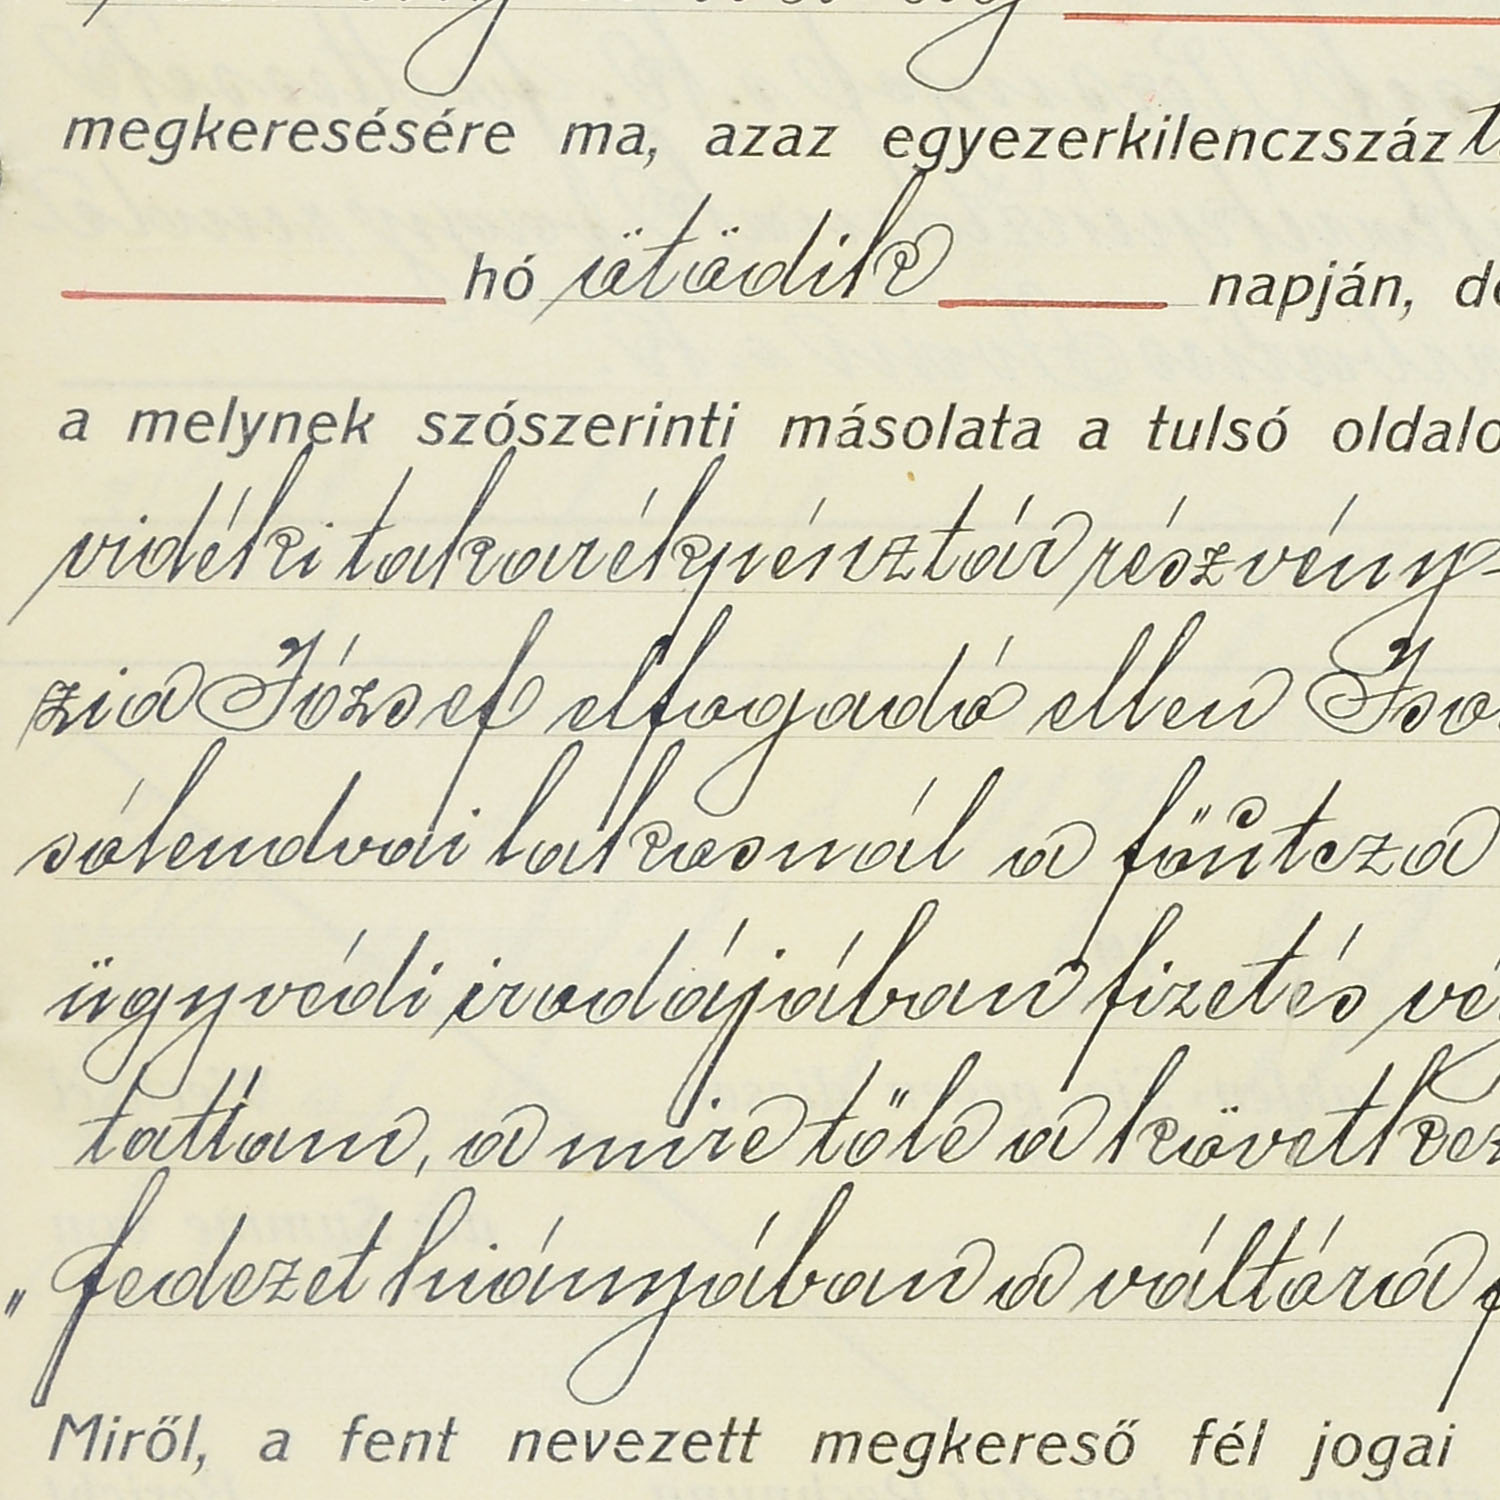 megkeresésére ma, azaz egyezerkilenczszáz
hó ötödik napján,
a melynek szószerinti másolata a tulsó
vidéki takarékpénztár részvény-
zia József elfogadó ellen
sólendvai lakosnál a főutcza
ügyvédi irodájában fizetés
tattam, a mire tőle a
„fedezet hiányában a váltóra
Miről, a fent nevezett megkereső fél jogai